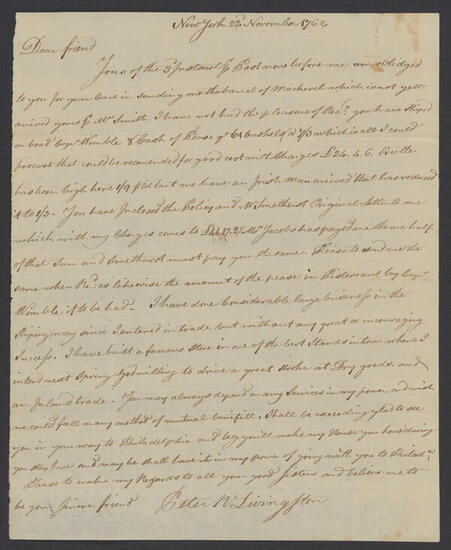 New York 22 November 176
Dear friend
Yours of the 3 Instant Post now before me am obledged
to you for your Care in sending me the barrel of Mackerel which is not yet
arrived yours Mr Smith I have not had the pleasure of you have Shipd
on board Capt Wimble 8 Cask of Pease bushels a which is all I could
procure that could be recomended for good cost with Charges £24.4.6. Butter
has been high here 1/4 but we have an Irish man arrived that has reduced
it to 1/3 - You have Inclosed the Policy and Original letter to me
which with my Charges comes to Mr Jacobs has payed me the one half
of that Sum and must pay you the same. Please to send me the
same when as likewise the amount of the pease in Pistereens by Capt
Wimble if to be had - I have done Considerable large bussness in the
Shiping way since I entered in trade but without any great or incouraging
Success. I have built a famous Store in one of the best Stands in town where I
intend next Spring God willing to drive a great stroke at Dry goods. and
an Inland trade - You may always depend on any Services in my power and wish
we could fall on any method of mutual benifitt. Shall be exceeding glad to see
you in your way to Philadelphia and beg you'll make my House your home during
your Stay here and may be shall have it in my power of going with you to Philada
Please to make my Regards to all your good Sisters and believe me to
be your sincere friend Peter V Livingston